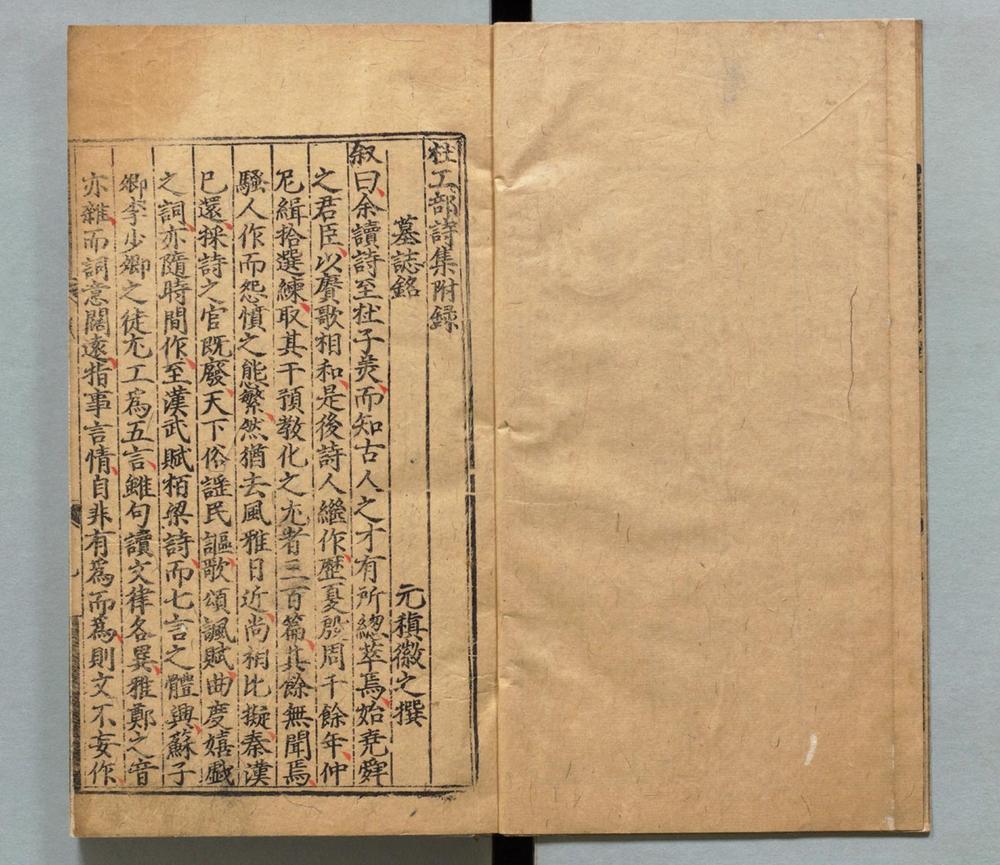 杜工部詩集附録
墓誌銘　元稹微之撰
叙曰余讀詩至杜子羙而知古人之才有所緫萃焉始尭舜
之君臣以賡歌相和是後詩人繼作歷夏殷周千餘年仲
尼緝拾選練取其干預敎化之尤者三百篇其餘無聞焉
騷人作而怨憤之態繁然猶去風雅日近尚相比擬秦漢
已還採詩之官旣廢天下俗謡民謳歌頌諷賦曲度嬉戲
之詞亦隨時間作至漢武賦栢梁詩而七言之體興蘇子
卿李少卿之徒尤工爲五言雖句讀文律各異雅鄭之音
亦雜而詞意闊遠指事言情自非有爲而爲則文不妄作